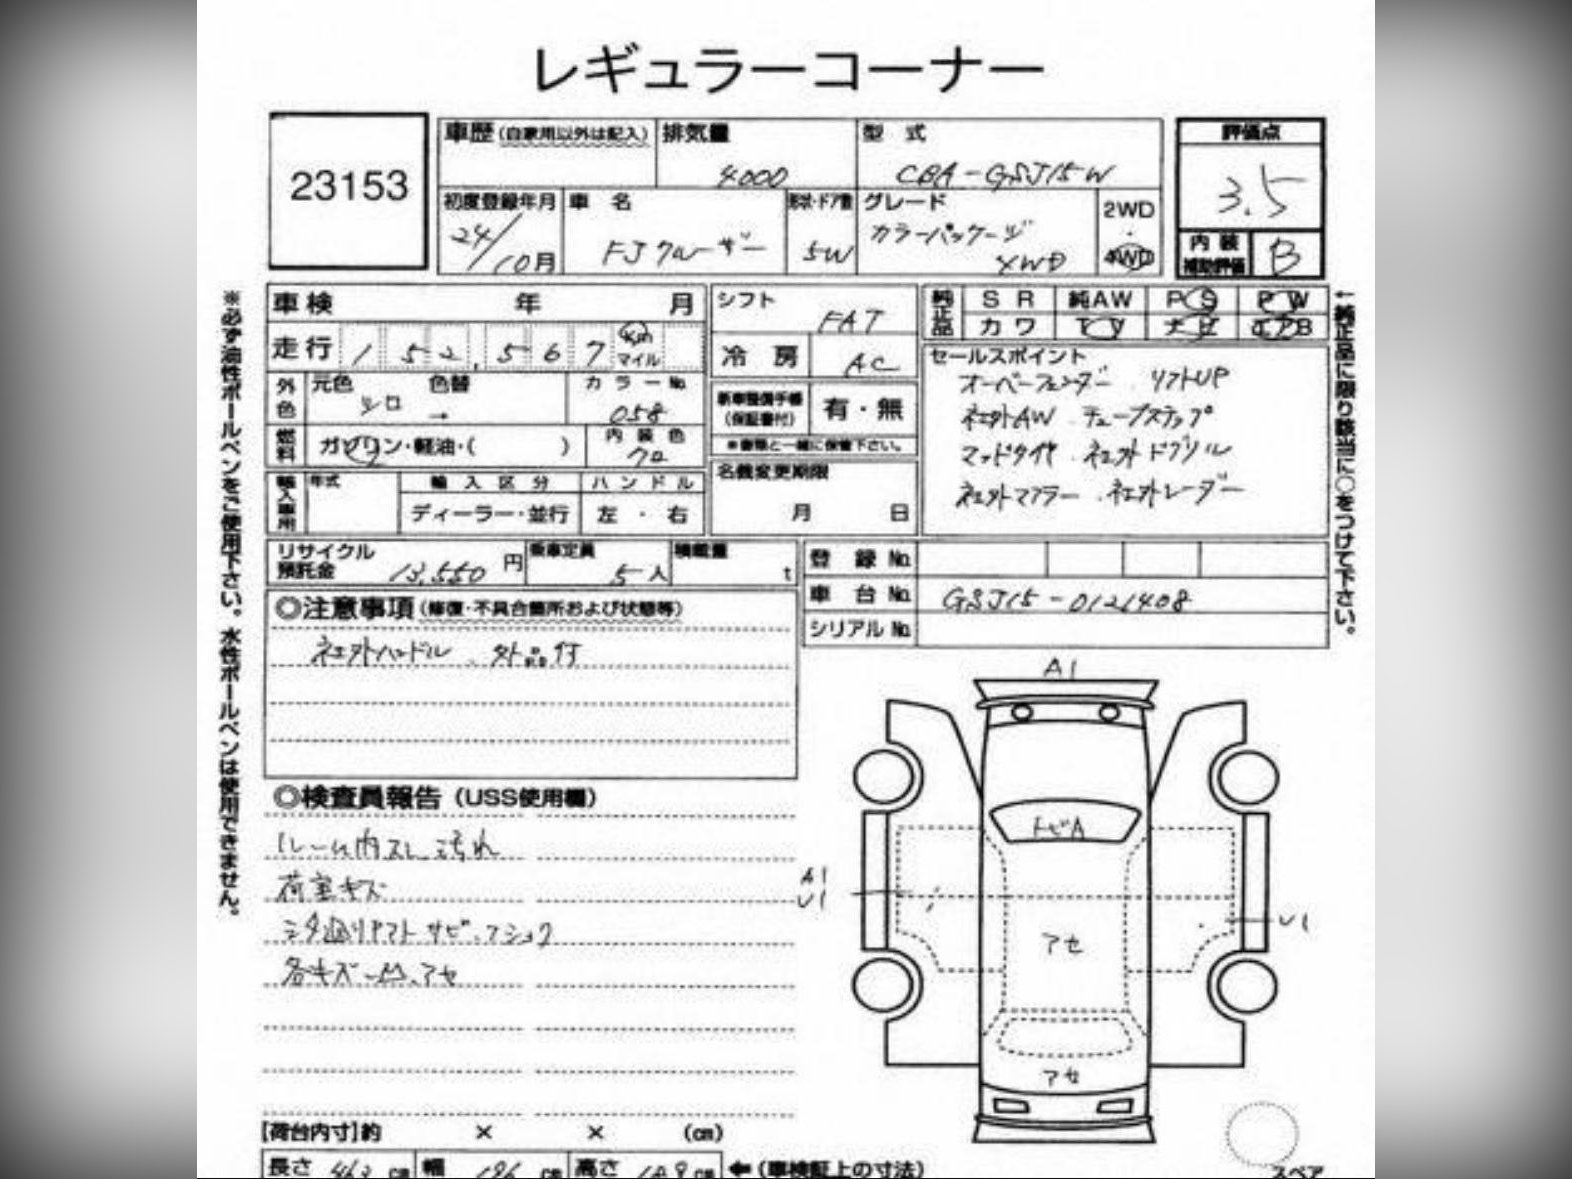 レギュラーコーナー
23153
車歴(自家用以外は記入)
排気量
4000
型 式
CBA-GSJ15W
評価点
3.5
初度登録年月
24/10月
車 名
FJクルーザー
形状・ドア数
5W
グレード
カラーパッケージ
4WD
2WD
・
4WD
内装
補助評価
B
※必ず油性ボールペンをご使用下さい。水性ボールペンは使用できません。
車検 年 月
走行 152,567 km
マイル
外色
元色 シロ
色替 →
カラーNo.
058
燃料
ガソリン・軽油・( )
内装色
クロ
輸入車用
年式
輸入区分
ディーラー・並行
ハンドル
左 ・ 右
シフト
FAT
冷 房
AC
新車整備手帳
(保証書付)
有・無
※書類と一緒に保管下さい。
名義変更期限
月 日
純正品
SR 純AW PS PW
カワ TV ナビ エアB
セールスポイント
オーバーフェンダー . リフトUP
社外AW . チューブステップ
マッドタイヤ . 社外ドグリル
社外マフラー . 社外レーダー
←純正品に限り該当に○をつけて下さい。
リサイクル
預託金
13,550 円
乗車定員
5人
積載量
t
登 録 No.
車 台 No. GSJ15-0121408
シリアル No.
◎注意事項(修復・不具合箇所および状態等)
社外ハンドル . 外品付
◎検査員報告(USS使用欄)
ルーム内スレ.汚れ
荷室キズ
シタ廻リヤフト サビ.フショク
各キズ凹.アセ
A1
トビA
A1
U1
U1
アセ
アセ
[荷台内寸]約 × × (cm)
長さ cm 幅 cm 高さ cm
←(車検証上の寸法)
スペア